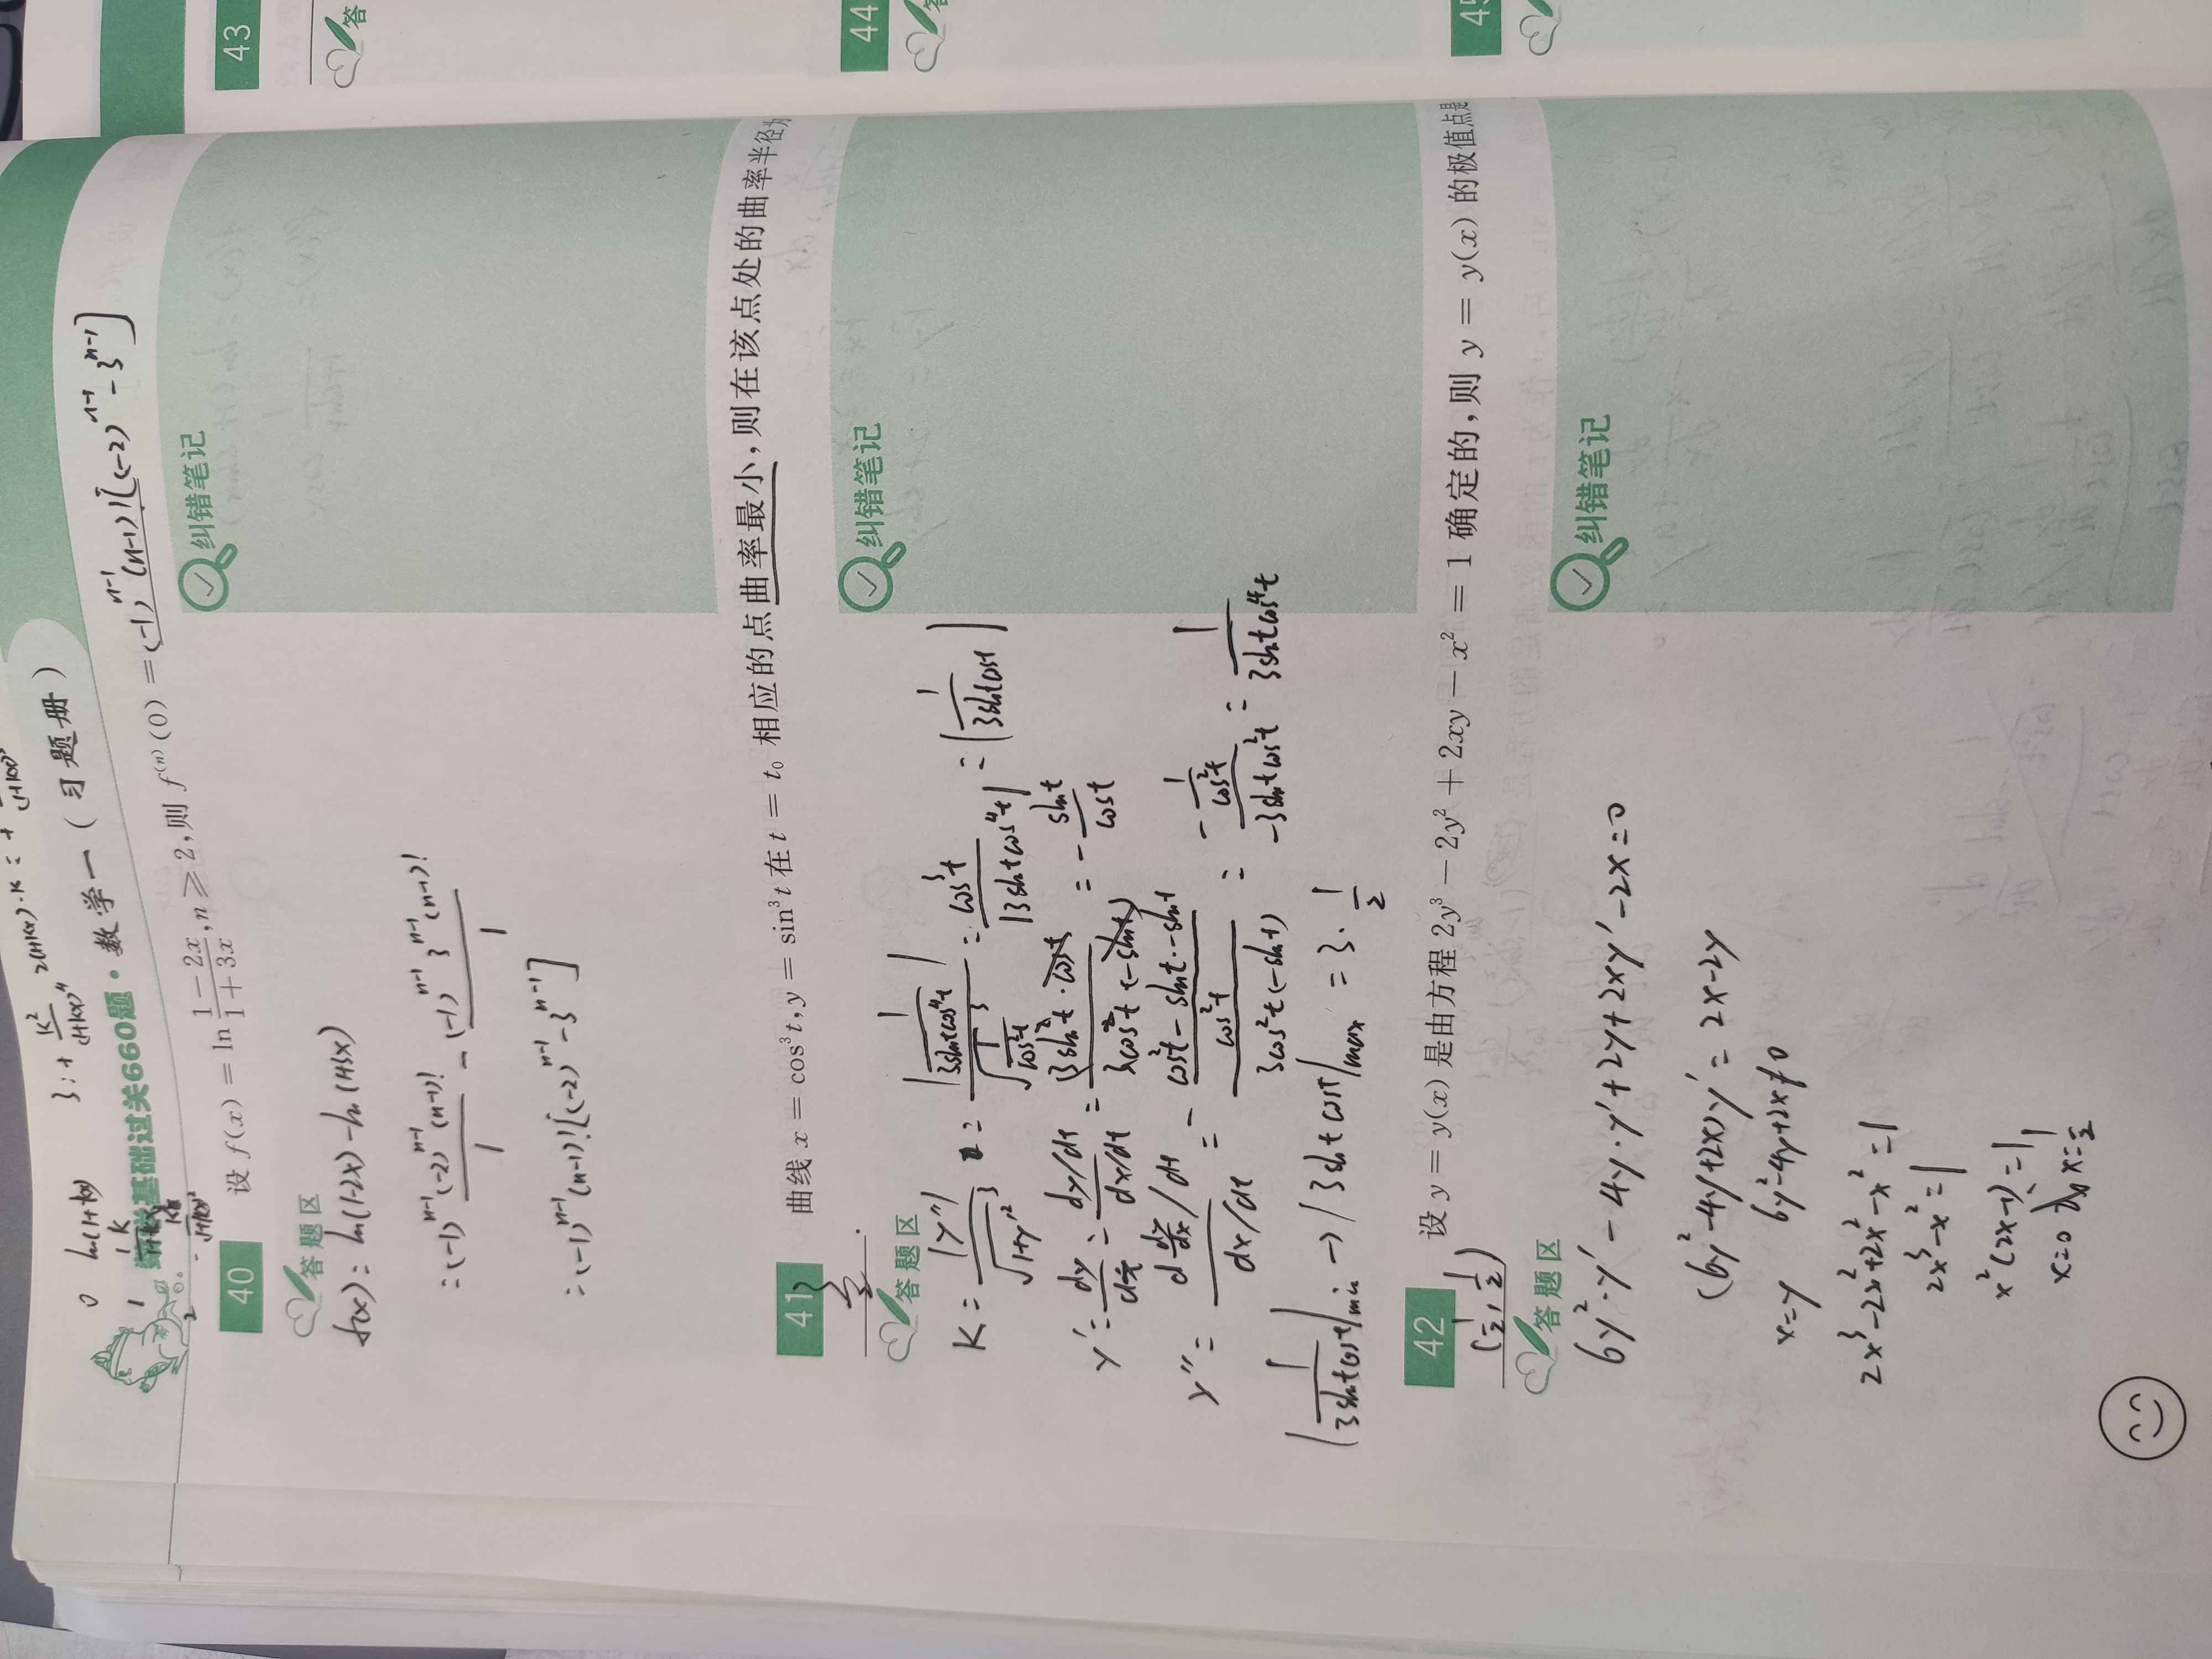 0 ln(1+kx)
3: + k²/(1+kx)⁴ 2(1+kx)·k = +
1 k/(1+kx)
数学基础过关660题·数学一(习题册)
2 - /(1+kx)²
40 设 f(x) = ln (1-2x)/(1+3x), n ≥ 2, 则 f⁽ⁿ⁾(0) = (-1)ⁿ⁻¹(n-1)![(-2)ⁿ⁻¹-3ⁿ⁻¹]
纠错笔记
答题区
f(x) = ln(1-2x) - ln(1+3x)
= (-1)ⁿ⁻¹ (-2)ⁿ⁻¹(n-1)!/1 - (-1)ⁿ⁻¹ 3ⁿ⁻¹(n-1)!/1
= (-1)ⁿ⁻¹(n-1)![(-2)ⁿ⁻¹-3ⁿ⁻¹]
41 曲线 x = cos³t, y = sin³t 在 t = t₀ 相应的点曲率最小,则在该点处的曲率半径为
3/2 .
纠错笔记
答题区
K = |y''|/√(1+y'²)³ = |1/(3sintcos⁴t)|/√(1/cos²t)³ = cos³t/|3sintcos⁴t| = |1/(3sintcost)|
y' = dy/dx = (dy/dt)/(dx/dt) = (3sin²t·cost)/(3cos²t(-sint)) = - sint/cost
y'' = (d dy/dx /dt)/(dx/dt) = - ((cos²t - sint·-sint)/cos²t)/(3cos²t(-sint)) = (-1/cos²t)/(-3sintcos²t) = 1/(3sintcos⁴t)
|1/(3sintcost)|min → |3sintcost|max = 3·1/2
42 设 y = y(x) 是由方程 2y³ - 2y² + 2xy - x² = 1 确定的,则 y = y(x) 的极值点是
(1/2, 1/2)
答题区
纠错笔记
6y²·y' - 4y·y' + 2y + 2xy' - 2x = 0
(6y²-4y+2x)y' = 2x-2y
x=y 6y²-4y+2x≠0
2x³-2x²+2x²-x²=1
2x³-x²=1
x²(2x-1)=1
x=0 x=1/2
43
答
44
答
45